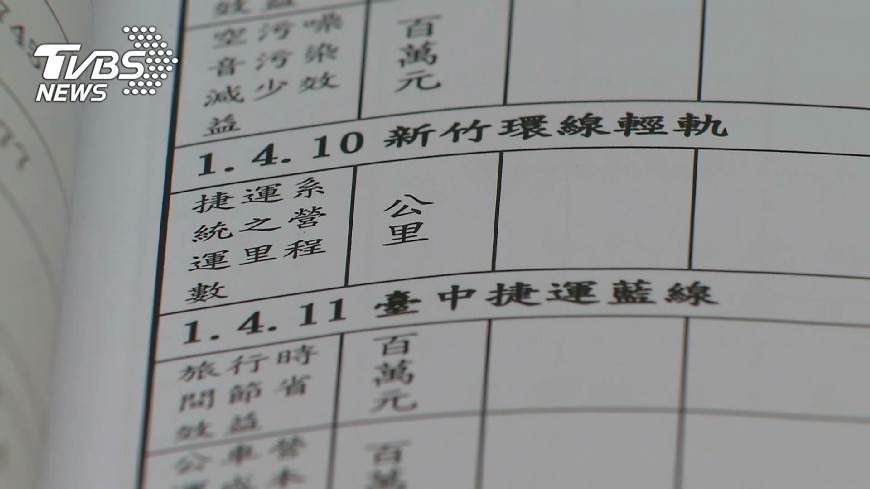 TVBS
NEWS
效益
空污噪
音污染
減少效
益
百
萬
元
1.4.10 新竹環線輕軌
捷運系
統之營
運里程
數
公
里
1.4.11 臺中捷運藍線
旅行時
間節省
效益
百
萬
元
公車營
運成本
百
萬